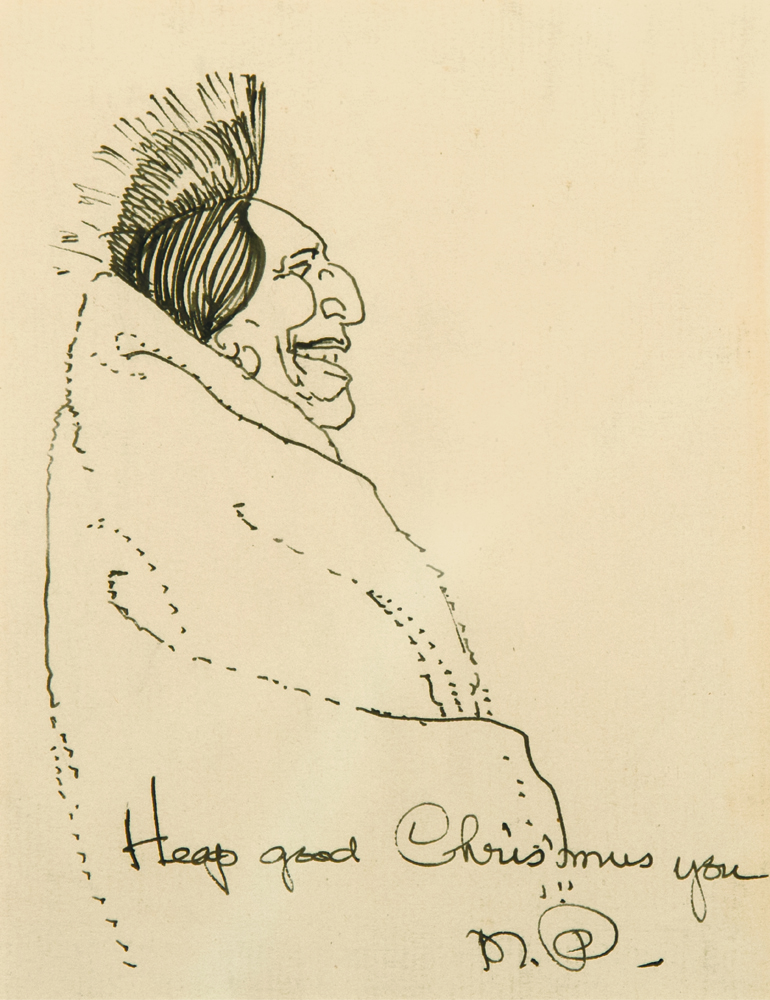 Heap good Chris'mus you
M.P. -